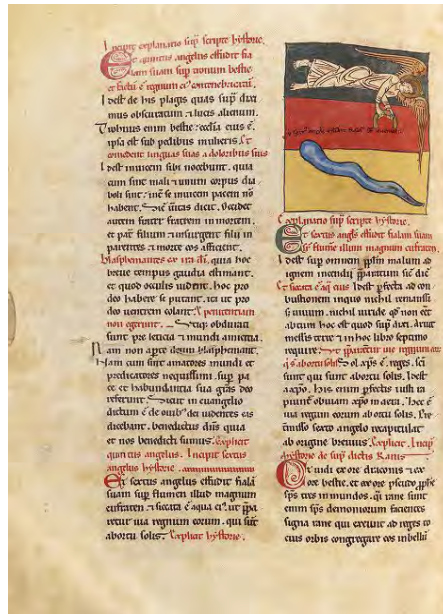 Incipit explanatio sup scripte hystorie.
Et quintus angelus effudit fia
lam suam sup tronum bestie
et factu ē regnum ei contenebratū.
Idest de his plagis quas sup dixi
mus obscuratum et luces alienum.
Tronus enim bestie ecclīa eius ē
ipsa est sub pedibus mulieris Et
comederunt linguas suas a doloribus suis
Idest invicem sibi nocebunt. quia
cum sint mali et unum corpus dia
boli sint. inē se invicem pacem nō
habent. Sic dicit. Occidet
autem frater fratrem in mortem.
et pat filium et insurgent filii in
parentes et morte eos afficient.
Blasphemantes ex ira di. quia hoc
breve tempus gaudia estimant.
et quod oculis vident. hoc pro
deo habere se putant. ut pro
deo ventrem colant. Et penitentiam
non egerunt. obdurati
sunt pre leticia et mundi amentia
Nam non apte deum blasphemant.
Nam cum sint amatores mundi et
predicatores nequissimi. sup pa
ce et habundantia sua gras deo
referunt. Sicut in evangelio
dictum ē de ovib; dei videntes eas
dicebant. benedictus dns quia
et nos benedicti sumus. Explicit
quintus angelus. Incipit sextus
angelus hystorie.
Et sextus angelus effudit fialā
suam sup flumen illud magnum
eufraten. et siccata ē aqua ei. ut ppa
retur via regnum eorum. qui sūt
abortu solis. Explicit hystorie.
Explanatio sup scripte hystorie.
Et sextus angls effudit fialam suam
sup flumē illum magnum eufraten.
Idest sup omnem pplm malum ad
ignem incendii pparatum sic dic
Et siccata ē aq eius Idest pfecta ad con
bustionem inquo nichil remansi
si nichil viride qd non ēēt
abcisum hoc est quod sup dixi. Aruit
messis terre et in hoc libro septimo
require. Ut pparetur via regnum eor
q̄ s abortu solis Sol xps ē. reges. sci
sunt qui sunt abortu solis. Idest
axpo. His enim pfectis iusti ra
piunt obviam xpo in aera. Hec ē
via regum eorum abortu solis. Fi
nito sexto angelo recapitulat
ab origine brevius. Explicit. Incipit
hystorie de sup dictis Ranis
Et vidi ex ore draconis et ex
ore bestie. et ex ore pseudo pphē
sps tres inmundos. q̄ rane sunt
enim sps demoniorum facientes
signa rane qui exeunt ad reges to
cius orbis congregare eos inbellū